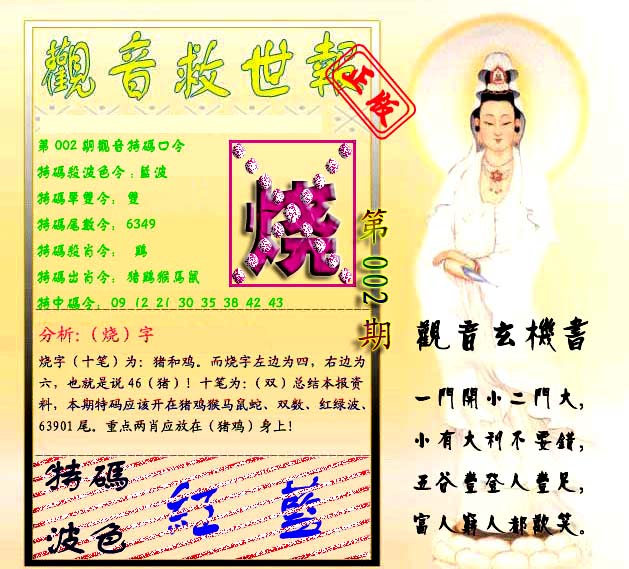 觀音救世報
正版
第 002 期觀音特碼口令
特碼殺波色令：藍波
特碼單雙令： 雙
特碼尾數令： 6349
特碼殺肖令： 鷄
特碼出肖令： 猪鷄猴馬鼠
特中碼令： 09 12 21 30 35 38 42 43
烧
第 002 期
分析：（烧）字
烧字（十笔）为：猪和鸡。而烧字左边为四，右边为
六，也就是说 46（猪）！十笔为：（双）总结本报资
料，本期特码应该开在猪鸡猴马鼠蛇、双数、红绿波、
63901 尾。重点两肖应放在（猪鸡）身上！
特碼
波色
紅 藍
觀音玄機書
一門開小二門大，
小有大利不要錯，
五谷豐登人豐足，
富人窮人都歡笑。